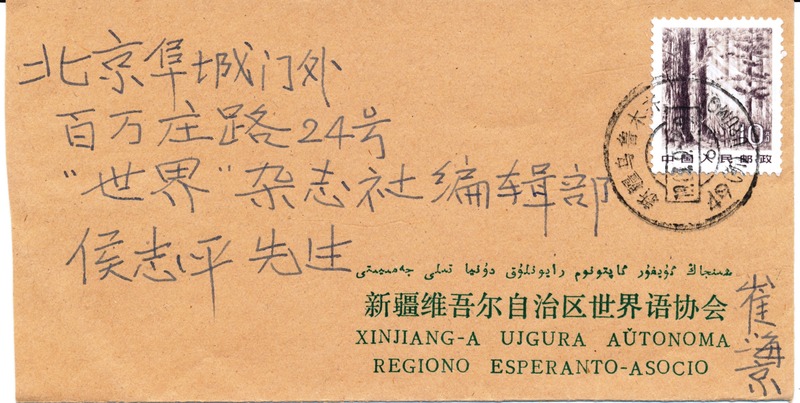 北京阜城门外
百万庄路24号
"世界"杂志社编辑部
侯志平先生
10
中国人民邮政
新疆乌鲁木
شىنجاڭ ئۇيغۇر ئاپتونوم رايونلۇق دۇنيا تىلى جەمئىيىتى
新疆维吾尔自治区世界语协会
XINJIANG-A UJGURA AŬTONOMA
REGIONO ESPERANTO-ASOCIO
崔海京